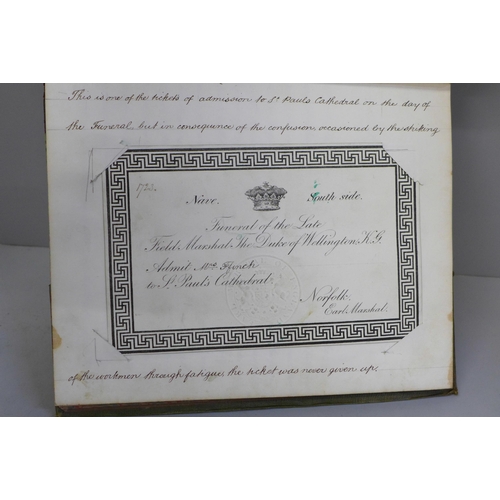 This is one of the tickets of admission to St Pauls Cathedral on the day of
the Funeral, but in consequence of the confusion occasioned by the striking
Nave. South side.
Funeral of the Late
Field Marshal The Duke of Wellington, K.G.
Admit Mrs Ffinch
to St Paul's Cathedral.
Norfolk,
Earl Marshal.
of the workmen through fatigue, the ticket was never given up.